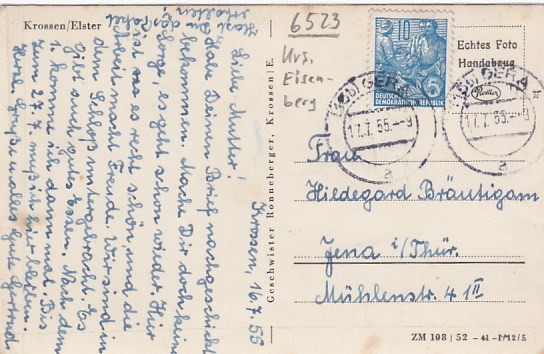 Krossen/Elster
Krossen, 16.7.55
Liebe Mutter!
Habe Deinen Brief nachgeschickt
bekommen. Mache Dir doch keine
Sorge, es geht schon wieder. Hier
ist es recht schön und die
Arbeit macht Freude. Wir sind in
dem Schloß untergebracht. Es
gibt auch gutes Essen. Nach dem
komme ich dann mal. Bis
zum 27.7. muß ich hier bleiben.
Herzl. Grüße u. alles gute Gertrud
Geschwister Ronneberger, Krossen/E.
6523
Krs.
Eisen-
berg
10
5
DEUTSCHE
DEMOKRATISCHE REPUBLIK
Echtes Foto
Handabzug
GERA
17.7.55.--9
a
GERA
17.7.55.--9
a
Frau
Hildegard Bräutigam
Jena i/Thür.
Mühlenstr. 41 II
ZM 108 | 52 - 41 - P/12/5.